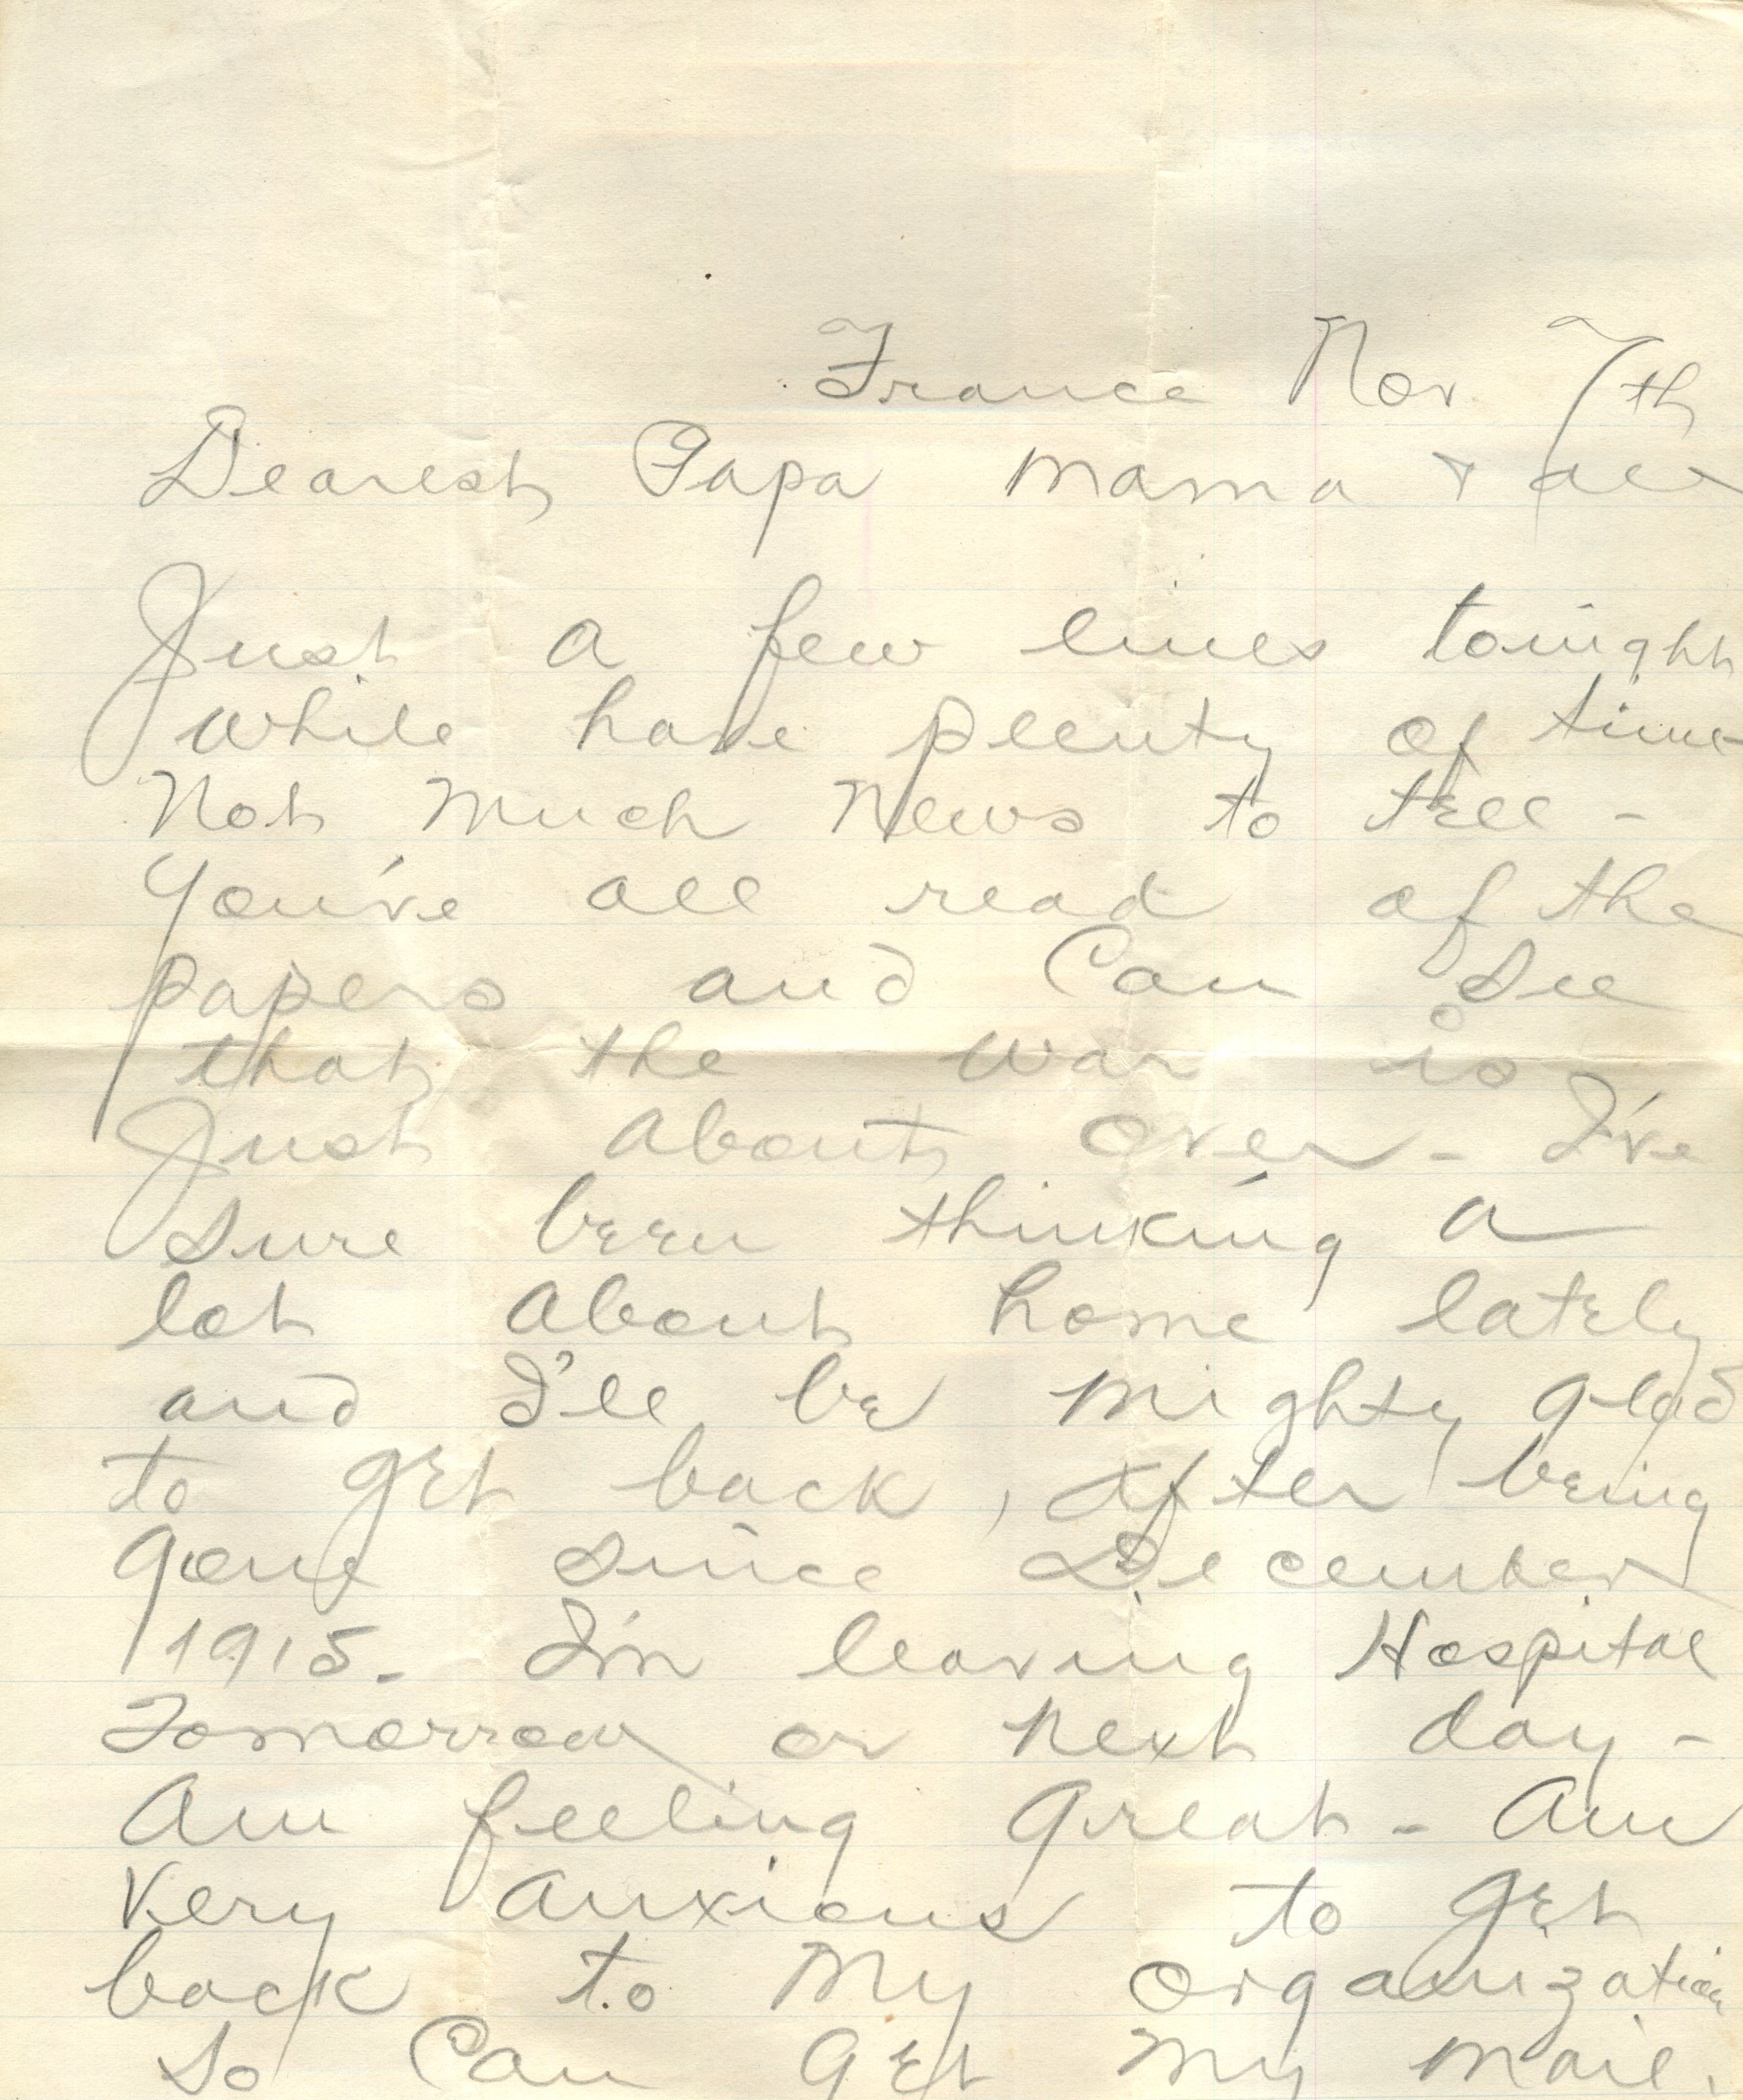 France Nov. 7th
Dearest Papa Mama & all
Just a few lines tonight
while have plenty of time
Not Much News to tell -
You've all read of the
papers and Can See
that the War is
Just About Over - I've
Sure been thinking a
lot About home lately
and I'll be Mighty glad
to get back, After being
gone since December
1915. I'm leaving Hospital
Tomorrow or Next day -
Am feeling Great - Am
Very Anxious to get
back to My Organization
So Can Get My Mail.